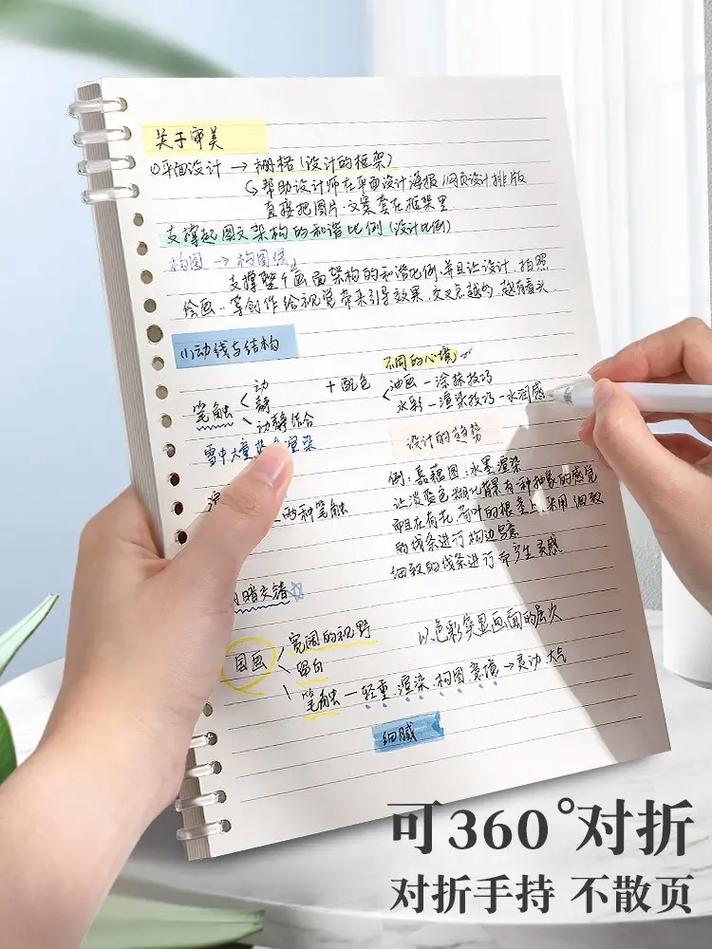 关于审美
平面设计 → 栅格(设计的框架)
↳ 帮助设计师在平面设计海报 网页设计排版
直接把图片·文案套在框架里
支撑起图文架构的和谐比例(设计比例)
构图 → 构图线
支撑整个画面架构的和谐比例.并且让设计、拍照
绘画..等创作给视觉带来引导效果,交叉点越多,越有看头
(1)动线与结构
不同的心境
笔触 < 动 + 配色
静
动静结合
油画 — 涂抹技巧
水彩 — 渲染技巧 — 水润感
雪中大量 渲染
设计的趋势
例:嘉藕图:水墨渲染
让淡蓝色糊化背景有种抽象的感觉
两种笔触
而且在荷花、荷叶的根茎上,采用细致
的线条进行构边写意
细致的线条进行 产生灵感
暗交错☆
国画 < 宽阔的视野
留白
笔触 — 轻重、渲染、构图 意境 → 灵动 大气
以色彩突显画面的层次
细腻
可360°对折
对折手持 不散页